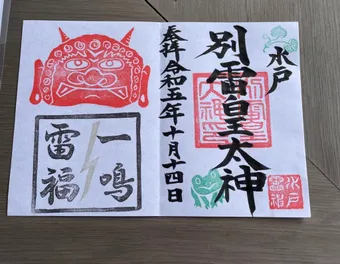 水戸
別雷皇太神
奉拝令和五年十月十四日
一鳴
雷福
水戸